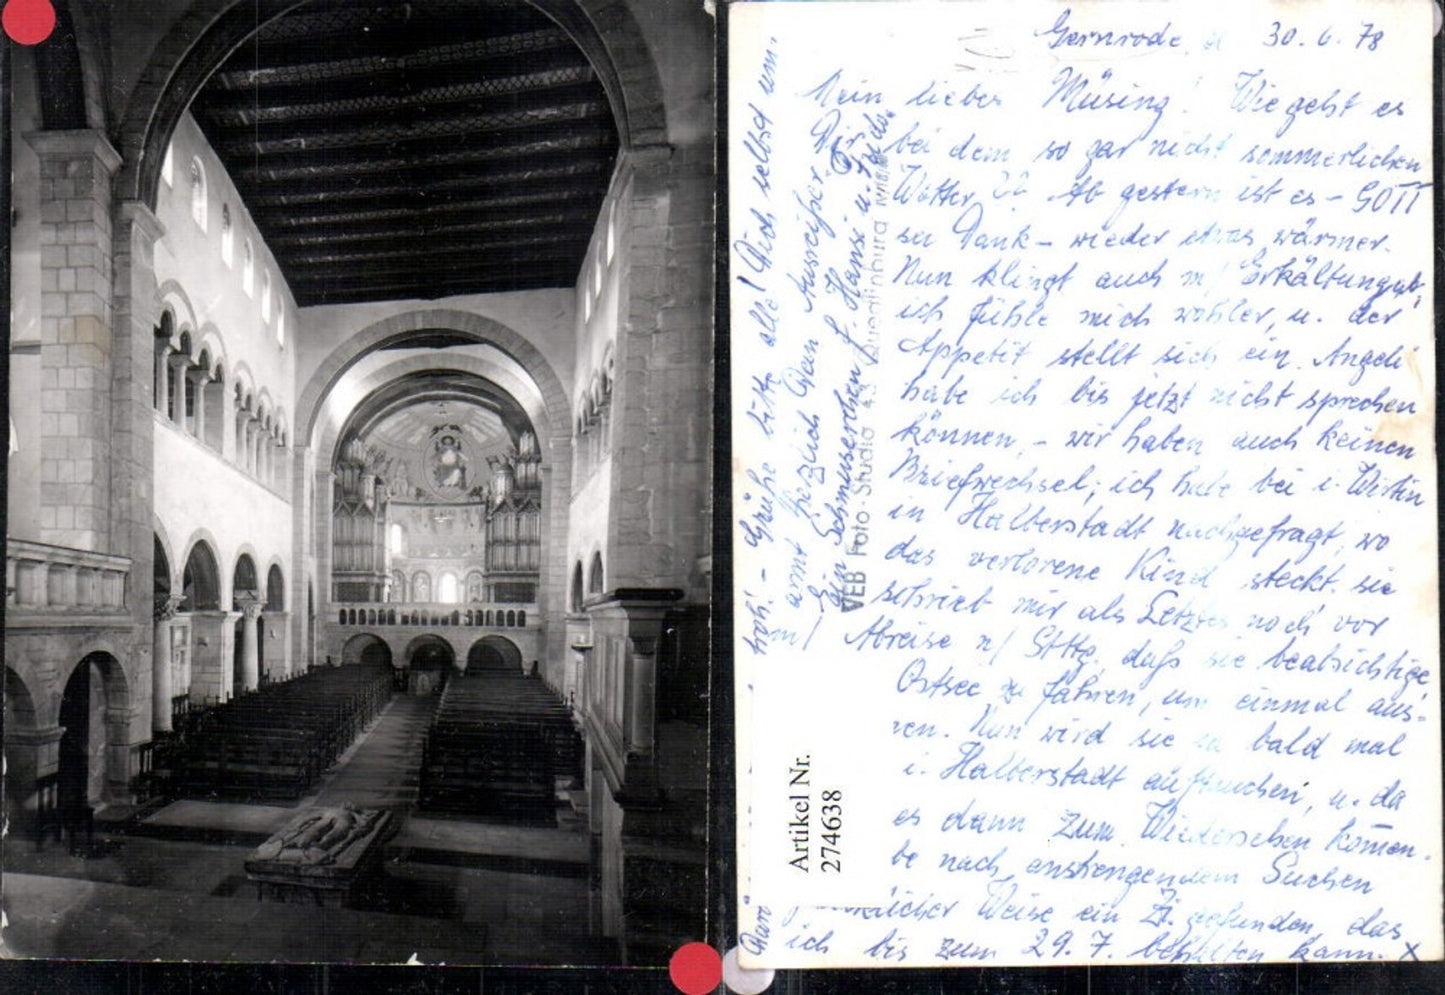 Gernrode, d 30.6.78
Mein lieber Müsing! Wie geht es
Dir bei dem so gar nicht sommerlichen
Wetter?? Ab gestern ist es – GOTT
sei Dank – wieder etwas wärmer.
Nun klingt auch m/ Erkältung ab,
ich fühle mich wohler, u. der
Appetit stellt sich ein. Angeli
habe ich bis jetzt nicht sprechen
können, – wir haben auch keinen
Briefwechsel; ich habe bei i. Wirtin
in Halberstadt nachgefragt, wo
das verlorene Kind steckt. sie
schrieb mir als Letztes noch vor
Abreise n/ Sttg. daß sie beabsichtige,
Ostsee zu fahren, um einmal aus-
Nun wird sie ja bald mal
i. Halberstadt auftauchen, u. da
es dann zum Wiedersehen kommen.
be nach anstrengendem Suchen
Weise ein Zi. gefunden, das
ich bis zum 29.7. behalten kann. X
froh! – Grüße bitte alle! Dich selbst um-
armt herzlich Dein Ausreißer
Ein Schmuserchen f. Hansi u.
VEB Foto-Studio 43 Quedlinburg
Artikel Nr.
274638